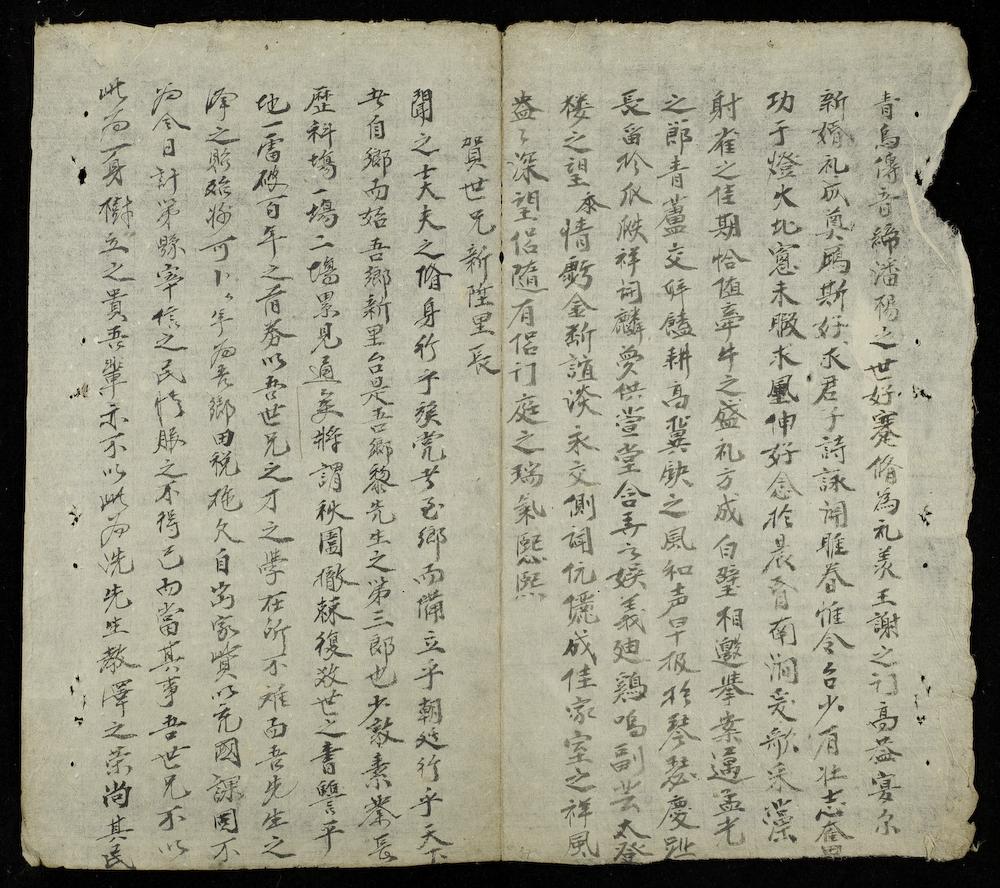 青鳥傳音締潘楊之世好蹇脩為礼羡王謝之门高益宴尔
新婚礼亟奠鴈斯好求君子詩詠関雎眷惟令台少有壮志奮
功于燈火北窓未暇求凰伸好念於晨昏南澗爰歌采藻
射雀之佳期恰值牽牛之盛礼方成白璧相邀挙案邁孟光
之郎青蘆交好饁耕高冀缺之風和声早报於琴瑟慶趾
長留於瓜瓞祥词麟夢供萱堂含弄之娱義廸鷄鳴副芸太登
楼之望本情斷金誼淡永交側闻伉儷成佳家室之祥風
盎〻深望侣隨有侣门庭之瑞氣熙熙
賀世兄新陞里長
聞之士夫夫之脩身行乎族党者至郷而備立乎朝廷行乎天下
者自郷而始吾郷新里台是吾郷黎先生之第三郎也少敦素業長
歷科塲一塲二塲累見通矣將謂秋圍撤棘復效世之書讐平
地一雷破百年之荒以吾世兄之才之學在所不难而吾先生之
澤之貽殆將可卜今年為吾郷田税拖欠自出家貲以充國課固不
為今日計第縣宰信之民情服之不得已而當其事吾世兄不以
此為一身樹立之貴吾輩亦不以此為洗先生教澤之荣尚其民